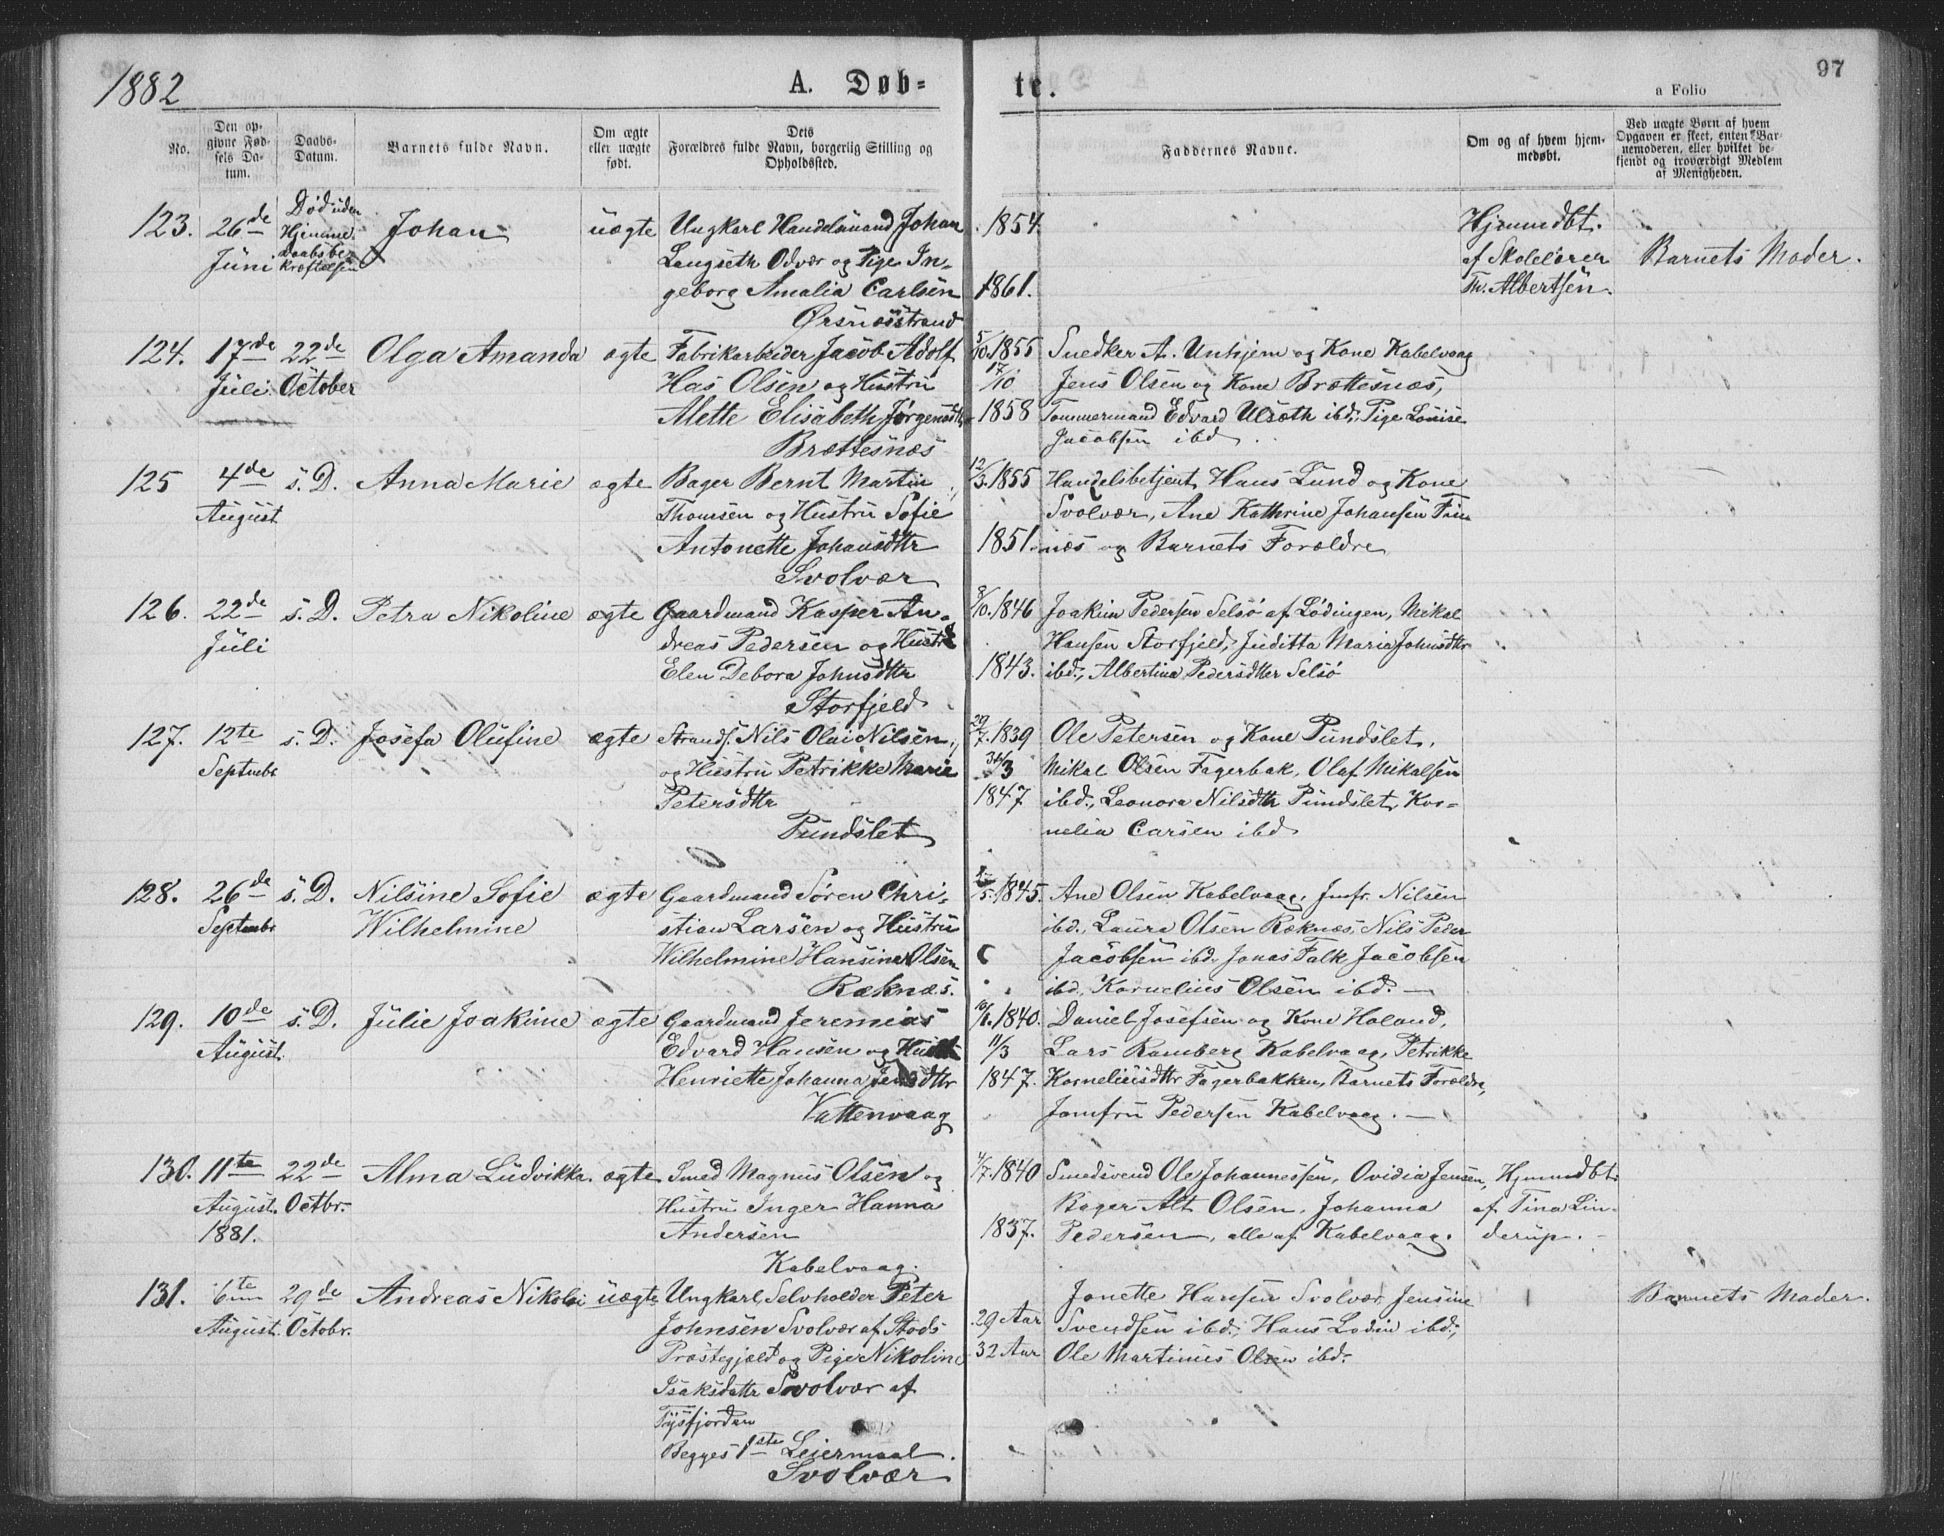 1882
A. Døb-
te.
97
a Folio
No.
Den op-
givne Fød-
sels Da-
tum.
Daabs-
Datum.
Barnets fulde Navn.
Om ægte
eller uægte
født.
Dets
Forældres fulde Navn, borgerlig Stilling og
Opholdssted.
Faddernes Navne.
Om og af hvem hjem-
medøbt.
Ved uægte Børn af hvem
Opgaven er skeet, enten Bar-
nemoderen, eller hvilket be-
kjendt og troværdigt Medlem
af Menigheden.
123. 26de Juni
Død uden
Hjemme
Daabsbe-
kræftelsen
Johan
uægte
Ungkarl Handelsmand Johan
Langseth Odvær og Pige In-
geborg Amalia Carlsen
Ørsnæsstrand
1854.
1861.
Hjemmdbt.
af Skolelærer
Th. Albertsen.
Barnets Moder.
124. 17de Juli
22de October
Olga Amanda
ægte
Fabrikarbeider Jacob Adolf
Has Olsen og Hustru
Alette Elisabeth Jørgensdtr
Brettesnæs
5/10.1855
17/10
1858
Snedker A. Unhjem og Kone Kabelvaag
Jens Olsen og Kone Brættesnæs,
Tømmermand Edvard Ulsæth ibd; Pige Louise
Jacobsen ibd
125 4de August
s. D.
Anna Marie
ægte
Bager Bernt Martin
Thomsen og Hustru Sofie
Antonette Johansdttr
Svolvær
12/3.1855
1851.
Handelsbetjent Hans Lund og Kone
Svolvær, Ane Kathrine Johansen Fin
næs og Barnets Forældre
126. 22de Juli
s. D.
Petra Nikoline
ægte
Gaardmand Kasper An-
dreas Pedersen og Hustr
Elen Debora Johnsdttr
Storfjeld
8/10.1846
1843.
Joakim Pedersen Selsø af Lødingen, Mikal
Hansen Storfjeld, Juditta Maria Johnsdttr
ibd., Albertina Pedersdtter Selsø
127. 12te Septmbr
s. D.
Josefa Olufine
ægte
Strands. Nils Olai Nilsen,
og Hustru Petrikke Marie
Petersdttr
Pundslet
29/7.1839
/3
1847
Ole Petersen og Kone Pundslet,
Mikal Olsen Fagerbak, Olaf Mikalsen
ibd., Leonora Nilsdttr Pundslet, Kor-
nelia Carsen ibd
128. 26de Septmbr
s. D.
Nilsine Sofie
Wilhelmine
ægte
Gaardmand Søren Chri-
stian Larsen og Hustru
Wilhelmine Hansine Olsen
Reknæs.
/5.1845.
Ane Olsen Kabelvaag, Jmfr. Nilsen
ibd., Laura Olsen Reknæs, Nils Peder
Jacobsen ibd. Jonas Falk Jacobsen
ibd, Kornelius Olsen ibd. —
129. 10de August.
s. D.
Julie Joakime
ægte
Gaardmand Jeremias
Edvard Hansen og Hustr
Henriette Johanna Jensdttr
Vattenvaag
10/1.1840.
11/3
1847.
Daniel Josefsen og Kone Holand,
Lars Ramberg Kabelvaag, Petrikke
Korneliusdttr Fagerbakken, Barnets Forældre,
Jomfru Pedersen Kabelvaag. —
130. 11te August. 1881.
22de Octbr.
Alma Ludvikka
ægte
Smed Magnus Olsen og
Hustru Inger Hanna
Andersen
Kabelvaag.
4/7.1840
1837.
Smedsvend Ole Johannessen, Ovidia Jensen,
Bager Alt Olsen, Johanna
Pedersen, alle af Kabelvaag.
Hjemmdbt.
af Tina Lin-
derup.
131. 6te August.
29de Octobr.
Andreas Nikolai
uægte
Ungkarl, Selvholder Peter
Johnsen Svolvær af Stods
Præstegjæld og Pige Nikoline
Isaksdattr Svolvær af
Tysfjorden
Begges 1ste Leiermaal.
Svolvær
29 Aar
32 Aar
Jonette Hansen Svolvær, Jensine
Svendsen ibd.; Hans Lodin ibd;
Ole Martinus Olsen ibd.
Barnets Moder.